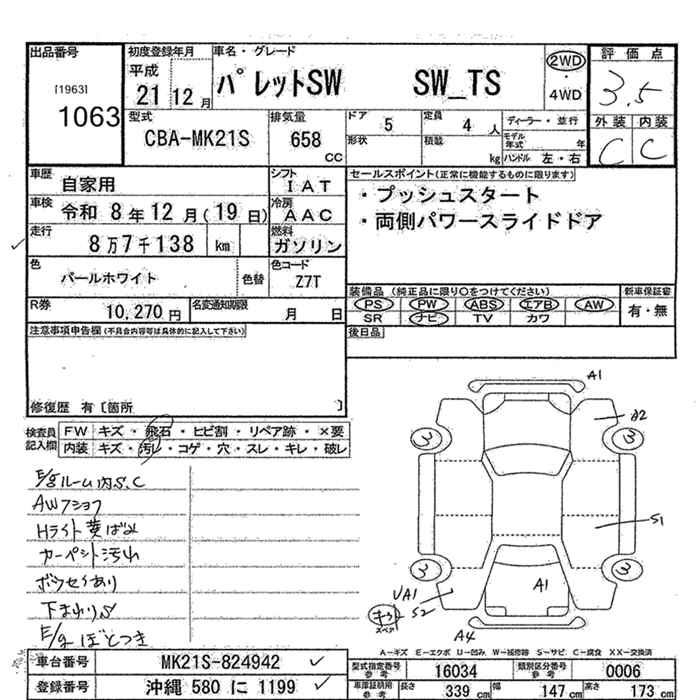 出品番号 初度登録年月 車名・グレード 評価点
[1963] 平成 2WD
1063 21 12月 パレットSW SW_TS ・ 3.5
4WD
型式 排気量 ドア 5 定員 4人 ディーラー・並行 外装 内装
CBA-MK21S 658 CC 形状 積載 kg モデル年式 年 C C
ハンドル 左・右
車歴 自家用 シフト IAT セールスポイント(正常に機能するものに限ります)
車検 令和 8年 12月(19日) 冷房 AAC ・プッシュスタート
走行 8万7千138 km 燃料 ガソリン ・両側パワースライドドア
色 パールホワイト 色替 色コード Z7T
装備品 (純正品に限り○をつけてください) 新車保証書
R券 10,270円 名変通知期限 月 日 PS PW ABS エアB AW 有・無
SR ナビ TV カワ
注意事項申告欄(不具合内容等は具体的に記入して下さい) 後日品
修復歴 有 [箇所 ]
検査員記入欄 FW キズ・飛石・ヒビ割・リペア跡・×要
内装 キズ・汚レ・コゲ・穴・スレ・キレ・破レ
E/gルーム内S.C
AWフショク
Hライト黄ばみ
カーペット汚れ
下まわりS
A1
A2
3 3
S1
3 3
A1
UA1
S2
A4
A-キズ E-エクボ U-凹み W-補修跡 S-サビ C-腐食 XX-交換済
車台番号 MK21S-824942 型式指定番号 参考 16034 類別区分番号 参考 0006
登録番号 沖縄 580 に 1199 車庫証明用 参考 長さ 339cm 幅 147cm 高さ 173cm